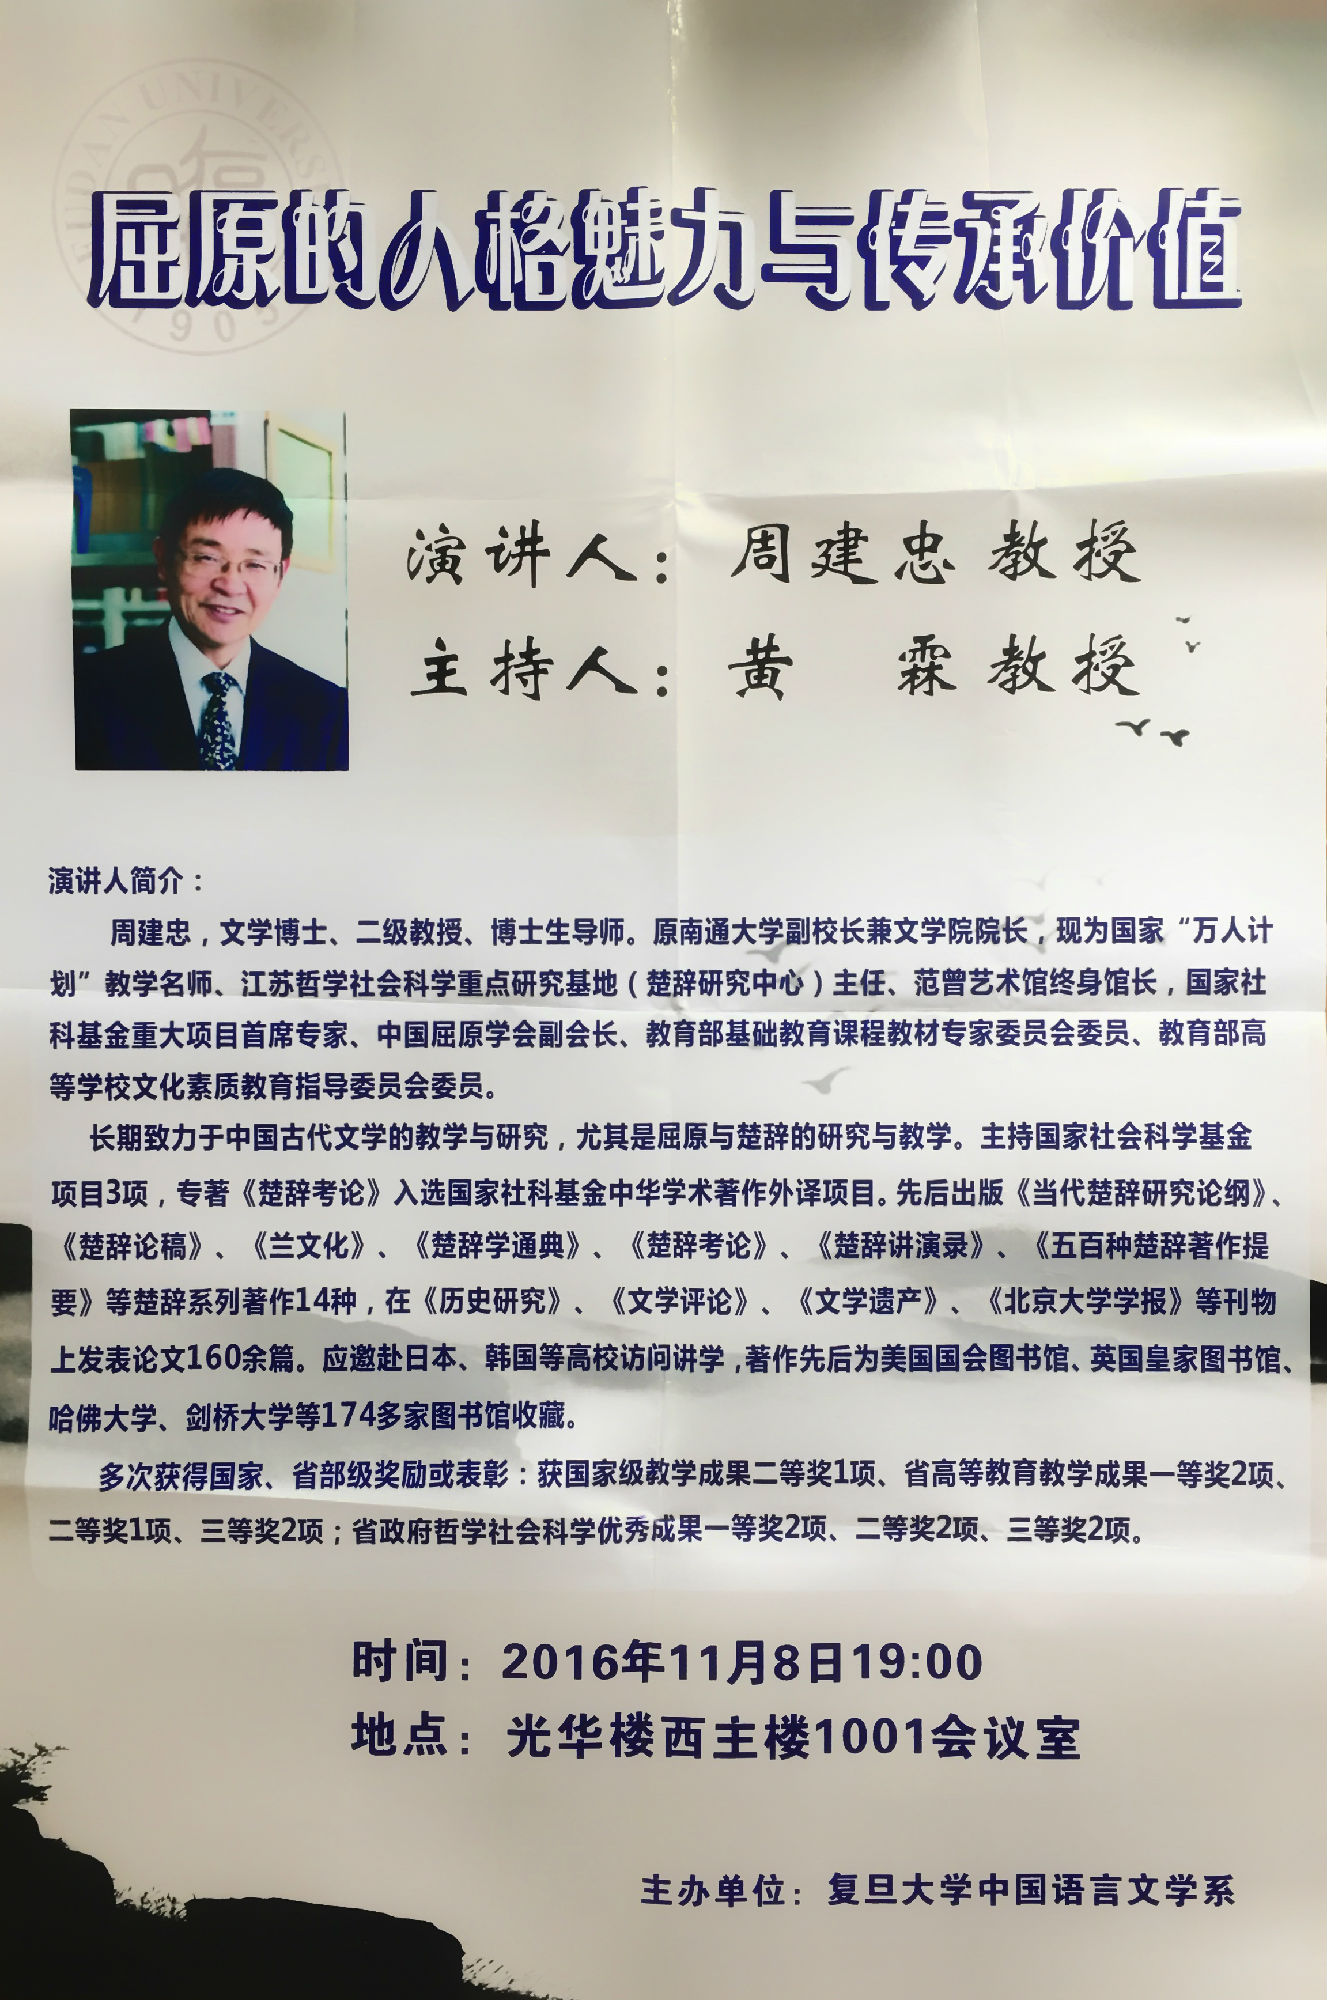 FUDAN UNIVERSI
1905
屈原的人格魅力与传承价值
演讲人：周建忠教授
主持人：黄 霖教授
演讲人简介：
周建忠，文学博士、二级教授、博士生导师。原南通大学副校长兼文学院院长，现为国家“万人计
划”教学名师、江苏哲学社会科学重点研究基地（楚辞研究中心）主任、范曾艺术馆终身馆长，国家社
科基金重大项目首席专家、中国屈原学会副会长、教育部基础教育课程教材专家委员会委员、教育部高
等学校文化素质教育指导委员会委员。
长期致力于中国古代文学的教学与研究，尤其是屈原与楚辞的研究与教学。主持国家社会科学基金
项目3项，专著《楚辞考论》入选国家社科基金中华学术著作外译项目。先后出版《当代楚辞研究论纲》、
《楚辞论稿》、《兰文化》、《楚辞学通典》、《楚辞考论》、《楚辞讲演录》、《五百种楚辞著作提
要》等楚辞系列著作14种，在《历史研究》、《文学评论》、《文学遗产》、《北京大学学报》等刊物
上发表论文160余篇。应邀赴日本、韩国等高校访问讲学，著作先后为美国国会图书馆、英国皇家图书馆、
哈佛大学、剑桥大学等174多家图书馆收藏。
多次获得国家、省部级奖励或表彰：获国家级教学成果二等奖1项、省高等教育教学成果一等奖2项、
二等奖1项、三等奖2项；省政府哲学社会科学优秀成果一等奖2项、二等奖2项、三等奖2项。
时间：2016年11月8日19:00
地点：光华楼西主楼1001会议室
主办单位：复旦大学中国语言文学系